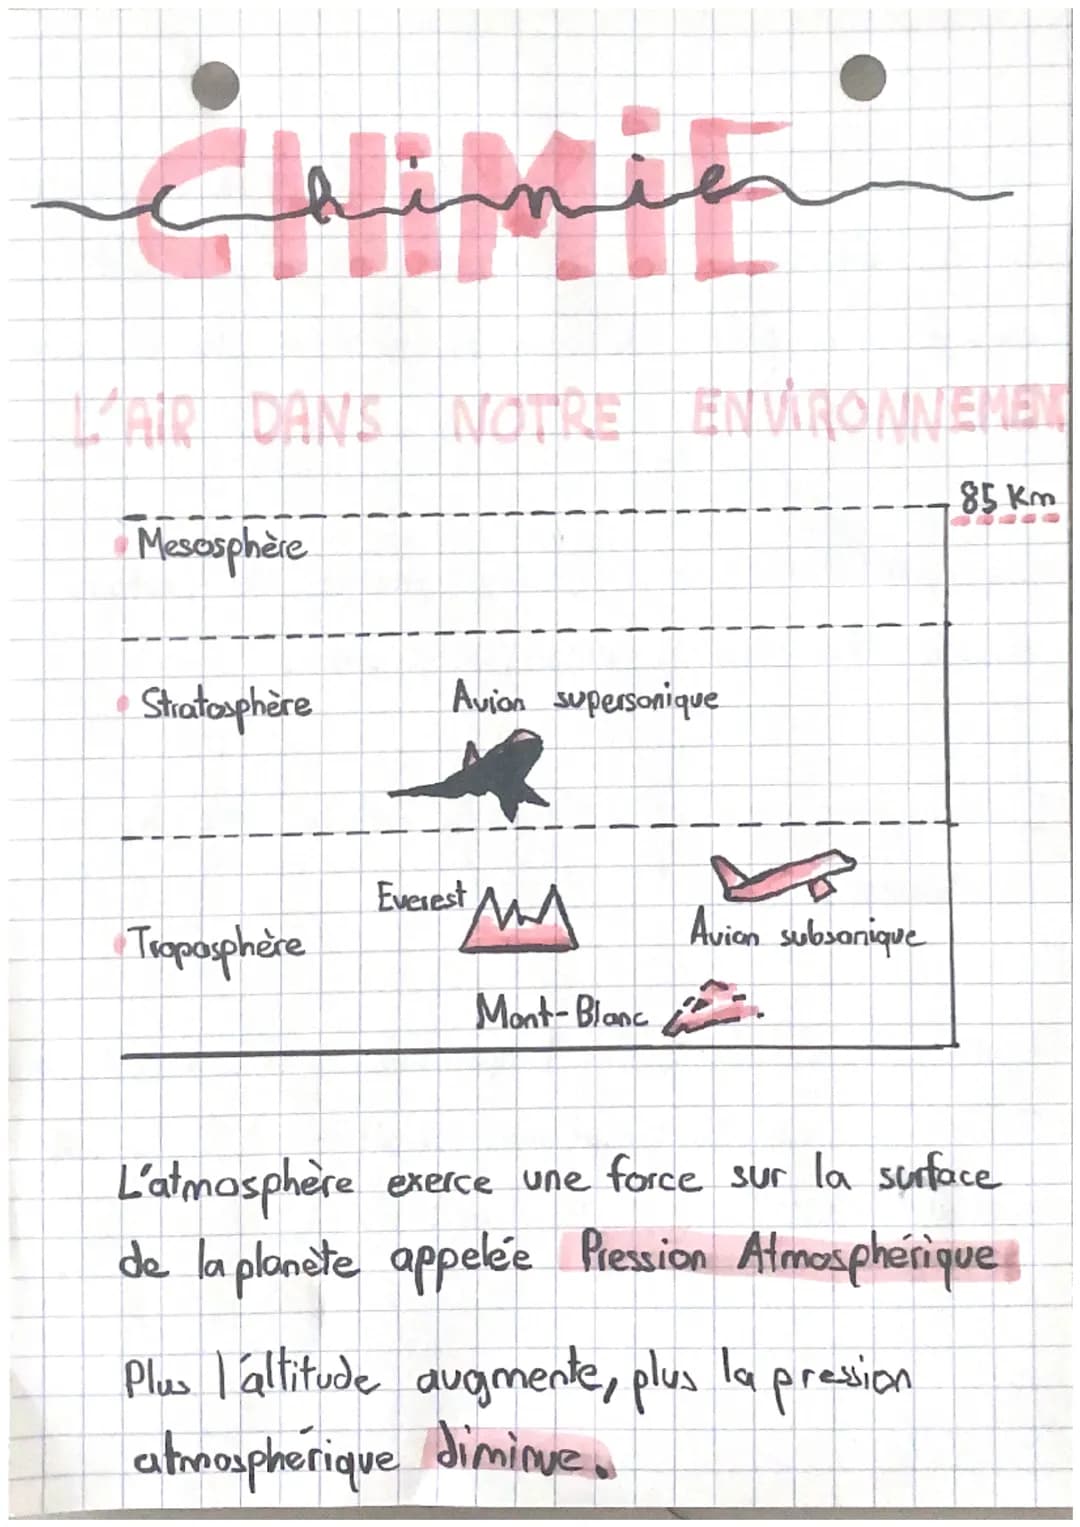 CHIMIE
Chimie
L'AIR DANS NOTRE ENVIRONNEMENT
85 Km
Mesosphère
Stratosphère
Avion supersonique
Everest
Troposphère
Avion subsonique
Mont-Blanc
L'atmosphère exerce une force sur la surface
de la planète appelée Pression Atmosphérique
Plus l'altitude augmente, plus la pression
atmosphérique diminue.